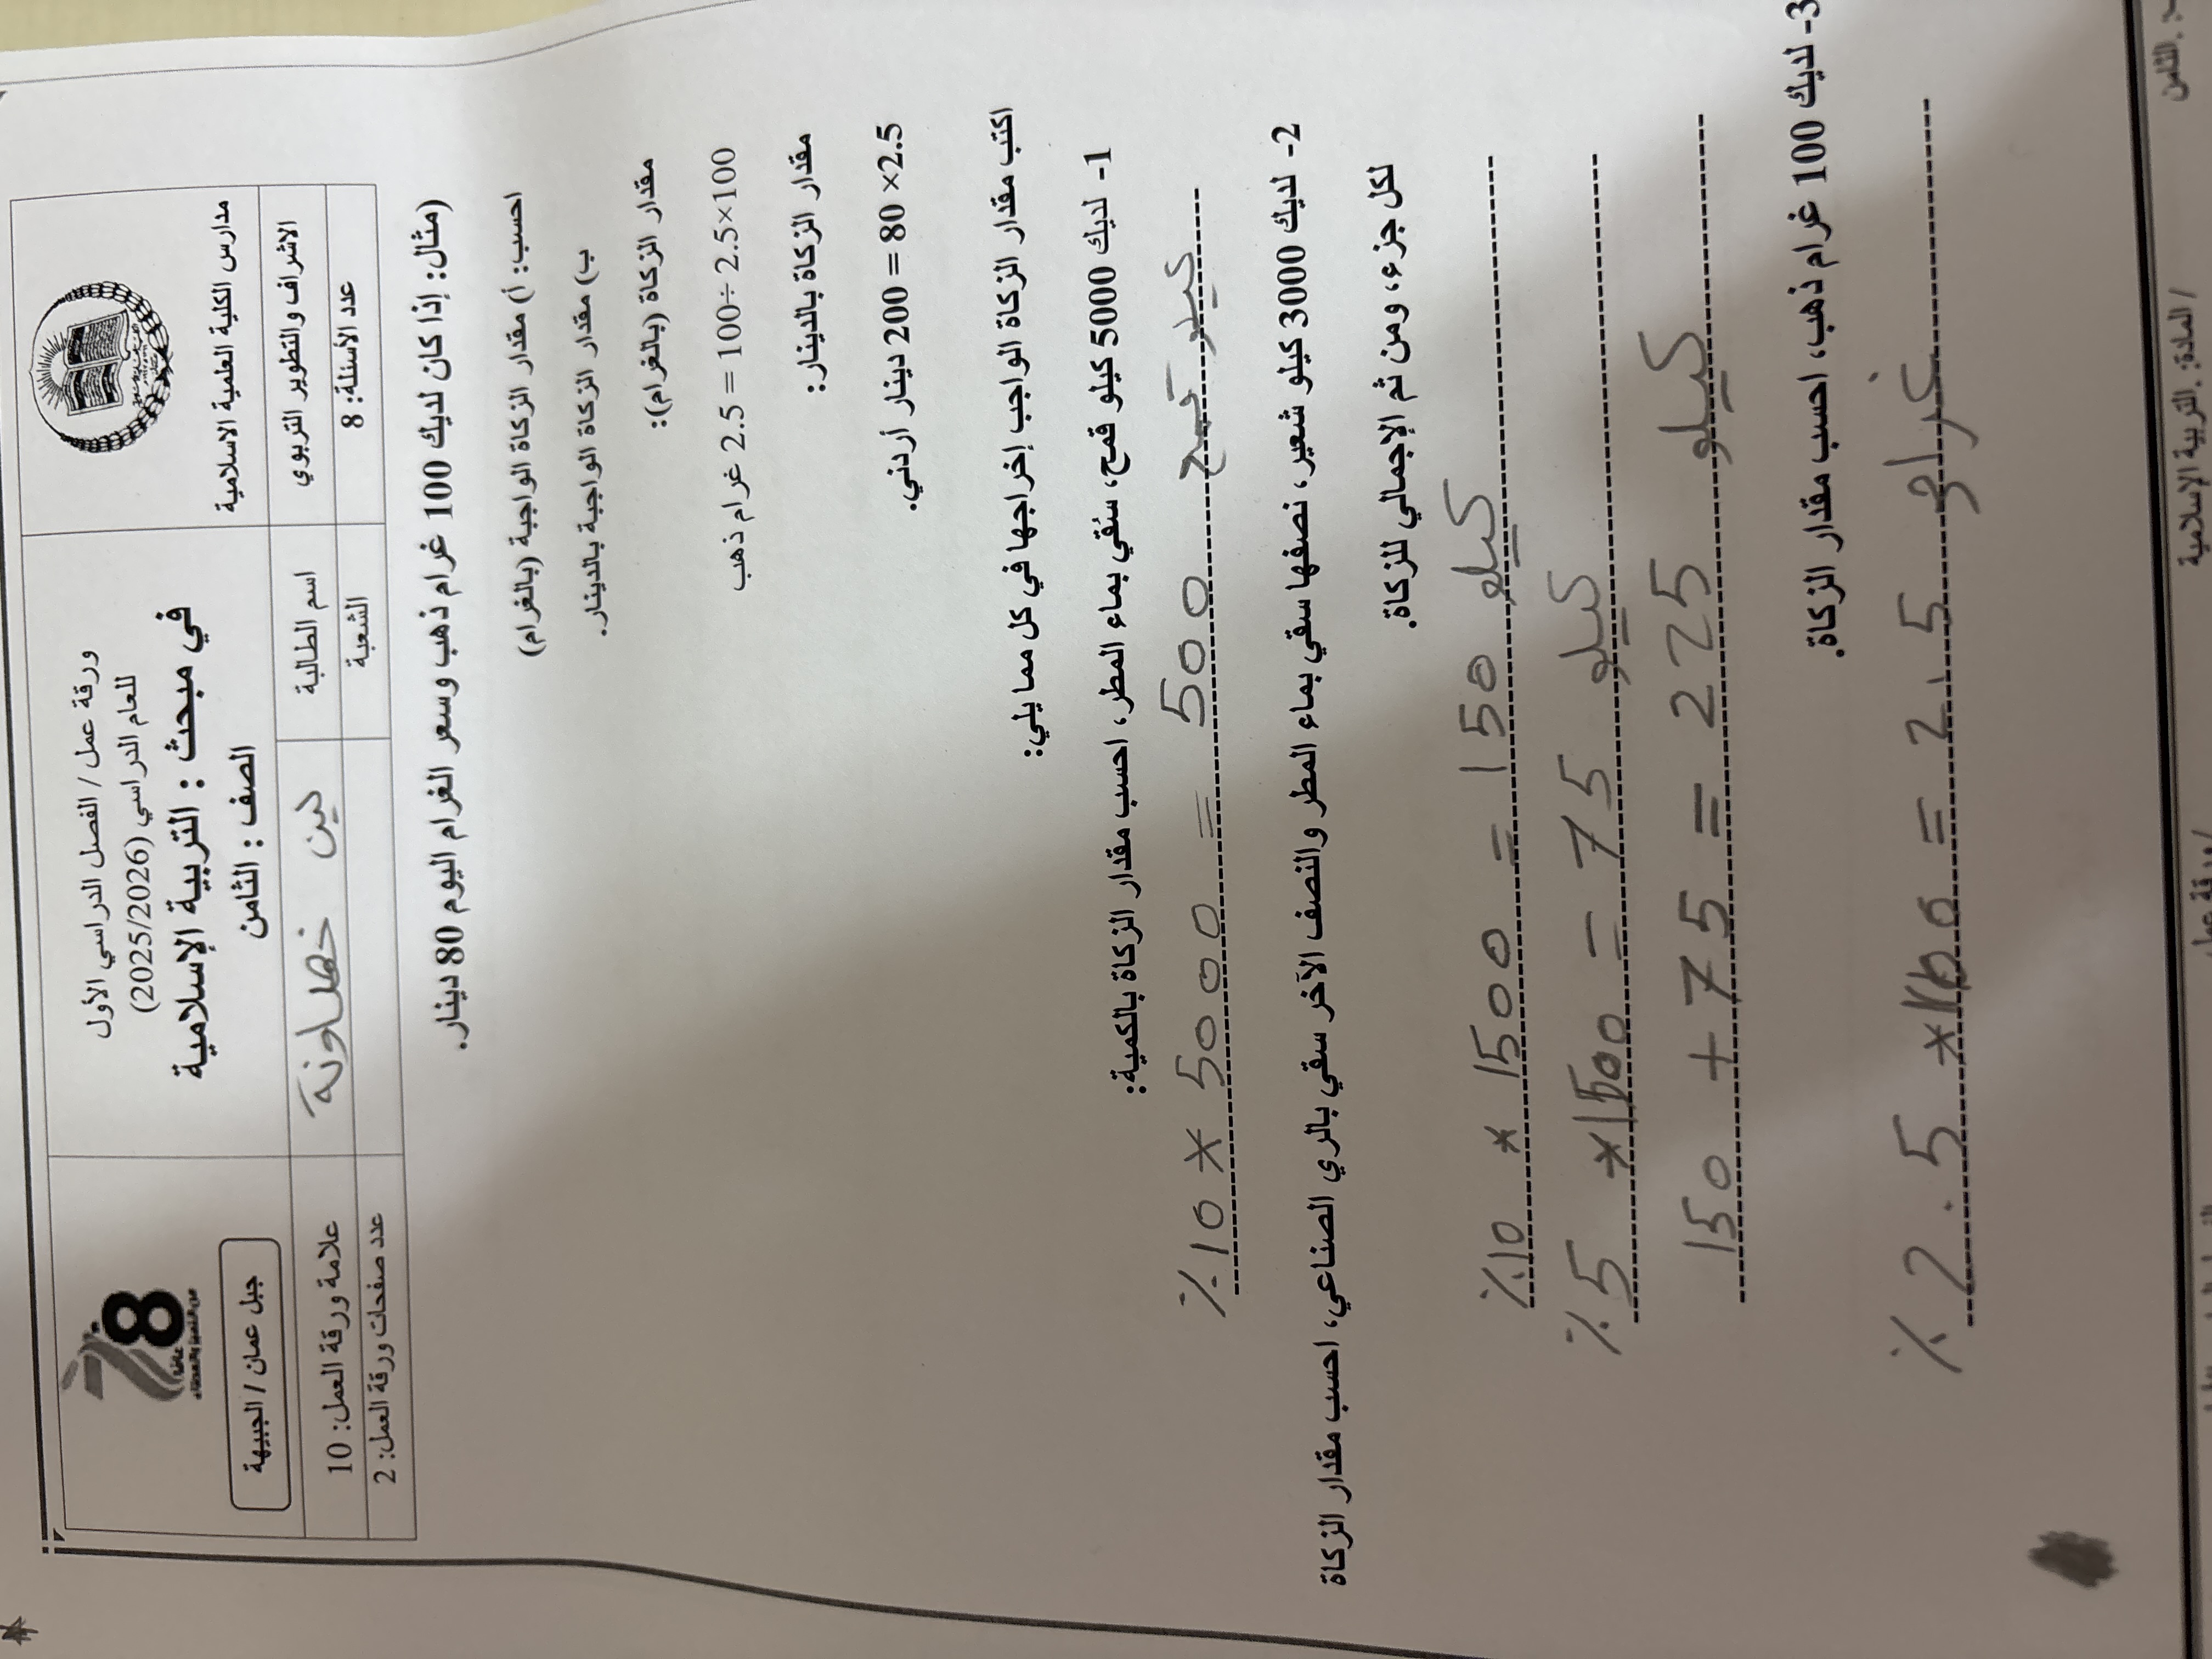 مدارس الكلية العلمية الاسلامية
ورقة عمل / الفصل الدراسي الأول
للعام الدراسي (2025/2026)
في مبحث : التربية الإسلامية
الصف : الثامن
جبل عمان / الجبيهة
الاشراف والتطوير التربوي
اسم الطالبة
علامة ورقة العمل: 10
عدد الأسئلة: 8
الشعبة
عدد صفحات ورقة العمل: 2
(مثال: إذا كان لديك 100 غرام ذهب وسعر الغرام اليوم 80 دينار.
احسب: أ) مقدار الزكاة الواجبة (بالغرام)
ب) مقدار الزكاة الواجبة بالدينار.
مقدار الزكاة (بالغرام):
100×2.5 ÷100 = 2.5 غرام ذهب
مقدار الزكاة بالدينار:
2.5× 80 = 200 دينار أردني.
اكتب مقدار الزكاة الواجب إخراجها في كل مما يلي:
1- لديك 5000 كيلو قمح، سُقي بماء المطر، احسب مقدار الزكاة بالكمية:
٪10 * 5000 = 500 كيلو قمح
2- لديك 3000 كيلو شعير، نصفها سقي بماء المطر والنصف الآخر سقي بالري الصناعي، احسب مقدار الزكاة
لكل جزء، ومن ثم الإجمالي للزكاة.
٪10 * 1500 = 150 كيلو
٪5 * 1500 = 75 كيلو
150 + 75 = 225 كيلو
3- لديك 100 غرام ذهب، احسب مقدار الزكاة.
٪2.5 * 100 = 2.5 غرام
المادة: .التربية الإسلامية